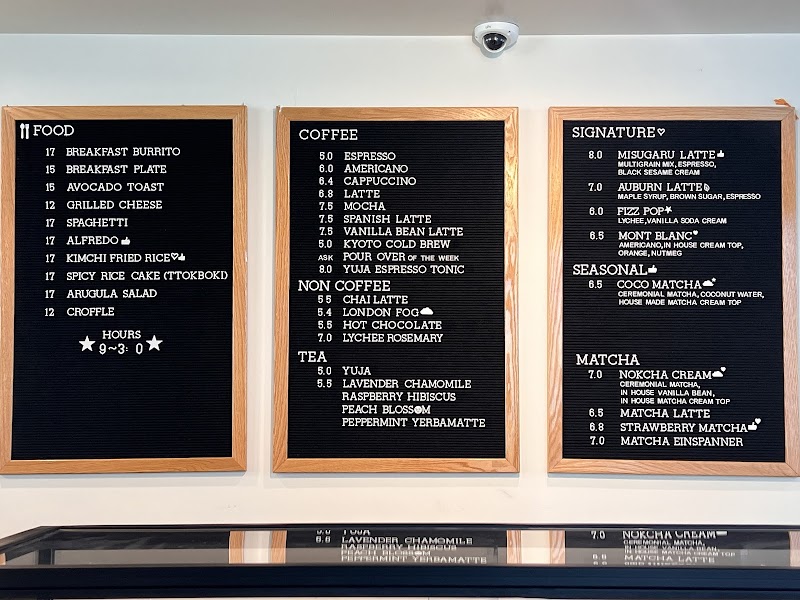 FOOD
17 BREAKFAST BURRITO
15 BREAKFAST PLATE
15 AVOCADO TOAST
12 GRILLED CHEESE
17 SPAGHETTI
17 ALFREDO
17 KIMCHI FRIED RICE
17 SPICY RICE CAKE (TTOKBOKI)
17 ARUGULA SALAD
12 CROFFLE
HOURS
9~3: 0
COFFEE
5.0 ESPRESSO
6.0 AMERICANO
6.4 CAPPUCCINO
6.8 LATTE
7.5 MOCHA
7.5 SPANISH LATTE
7.5 VANILLA BEAN LATTE
5.0 KYOTO COLD BREW
ASK POUR OVER OF THE WEEK
8.0 YUJA ESPRESSO TONIC
NON COFFEE
5 5 CHAI LATTE
5.4 LONDON FOG
5.5 HOT CHOCOLATE
7.0 LYCHEE ROSEMARY
TEA
5.0 YUJA
5.5 LAVENDER CHAMOMILE
RASPBERRY HIBISCUS
PEACH BLOSSOM
PEPPERMINT YERBAMATTE
SIGNATURE
8.0 MISUGARU LATTE
MULTIGRAIN MIX, ESPRESSO,
BLACK SESAME CREAM
7.0 AUBURN LATTE
MAPLE SYRUP, BROWN SUGAR, ESPRESSO
6.0 FIZZ POP
LYCHEE, VANILLA SODA CREAM
6.5 MONT BLANC
AMERICANO, IN HOUSE CREAM TOP,
ORANGE, NUTMEG
SEASONAL
6.5 COCO MATCHA
CEREMONIAL MATCHA, COCONUT WATER,
HOUSE MADE MATCHA CREAM TOP
MATCHA
7.0 NOKCHA CREAM
CEREMONIAL MATCHA,
IN HOUSE VANILLA BEAN,
IN HOUSE MATCHA CREAM TOP
6.5 MATCHA LATTE
6.8 STRAWBERRY MATCHA
7.0 MATCHA EINSPANNER
5.0 YUJA
5.5 LAVENDER CHAMOMILE
RASPBERRY HIBISCUS
PEACH BLOSSOM
PEPPERMINT YERBAMATTE
7.0 NOKCHA CREAM
CEREMONIAL MATCHA,
IN HOUSE VANILLA BEAN,
IN HOUSE MATCHA CREAM TOP
6.5 MATCHA LATTE